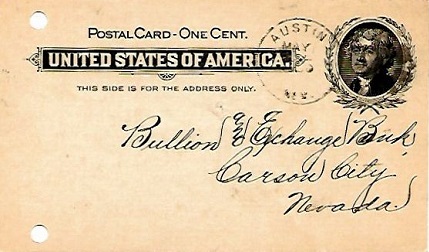 POSTAL CARD - ONE CENT.
UNITED STATES OF AMERICA.
THIS SIDE IS FOR THE ADDRESS ONLY.
AUSTIN
MAY
NEV.
Bullion & Exchange Bank
Carson City
Nevada.